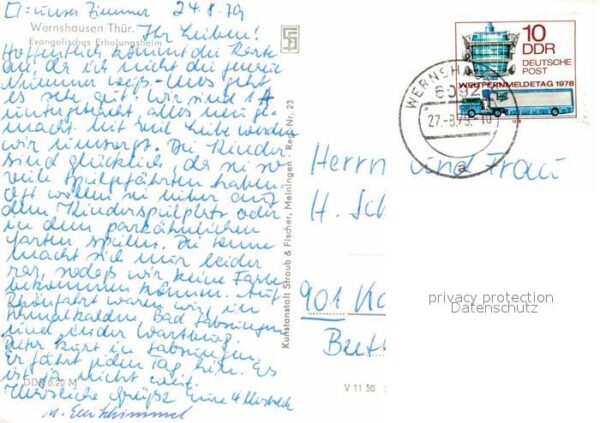 □ = unser Zimmer 24.8.79
Wernshausen Thür.
Evangelisches Erholungsheim
Ihr Lieben!
Hoffentlich kommt die Karte
an, da ich nicht die
Nummer weiß. Uns geht
es sehr gut, wir sind 1A
untergebracht, alles neu ge-
macht. Mit viel Liebe werden
wir umsorgt. Die Kinder
sind glücklich, da sie so
viele Spielgefährten haben.
Oft wollen sie lieber auf
dem Kinderspielplatz oder
in dem parkähnlichen
Garten spielen. Die Sonne
macht sich nur leider
rar, sodaß wir keine Farbe
bekommen können. Auf
Rhönfahrt waren wir, in
Schmalkalden, Bad Salzungen
und in der Wartburg.
Dieter kurt in Salzungen.
Er fährt jeden Tag hin. Es
ist ja nicht weit.
Herzliche Grüße Eure 4
DDR 0,20 M
Kunstanstalt Straub & Fischer, Meiningen - Reg. Nr. 23
V 11 50
10
DDR
DEUTSCHE
POST
WELTFERNMELDETAG 1978
WERNSHA
6092
27.-8.79.-10
a
Herrn und Frau
H. Sch
901 Ka
privacy protection
Datenschutz